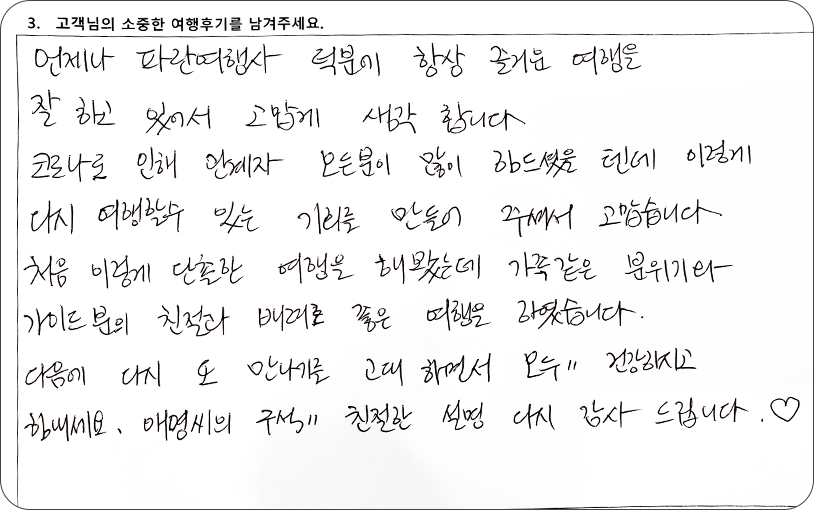 3. 고객님의 소중한 여행후기를 남겨주세요.
언제나 파란여행사 덕분에 항상 즐거운 여행을
잘 하고 있어서 고맙게 생각 합니다
코로나로 인해 관계자 모든분이 많이 힘드셨을 텐데 이렇게
다시 여행할수 있는 기회를 만들어 주셔서 고맙습니다
처음 이렇게 단촐한 여행을 해봤는데 가족같은 분위기와
가이드분의 친절과 배려로 좋은 여행을 하였습니다.
다음에 다시 또 만나기를 고대 하면서 모두" 건강하시고
힘내세요. 애영씨의 구석" 친절한 설명 다시 감사 드립니다. ♡